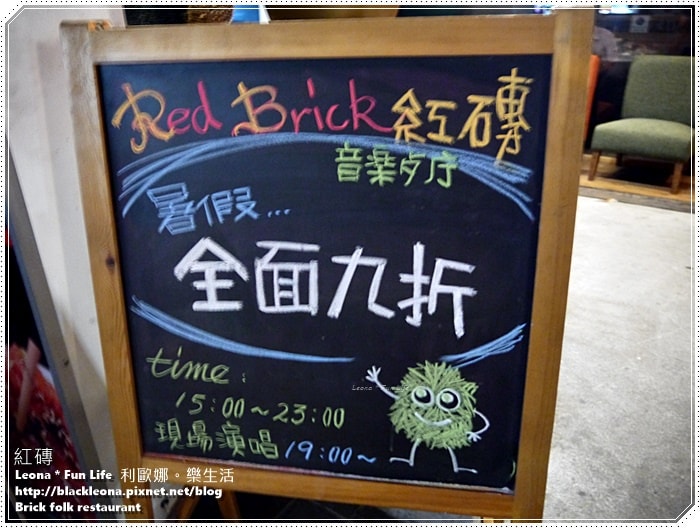 Red Brick 紅磚
音樂夕序
暑假...
全面九折
time:
15:00~23:00
現場演唱 19:00~
Leona * Fun Life
紅磚
Leona * Fun Life 利歐娜。樂生活
http://blackleona.pixnet.net/blog
Brick folk restaurant